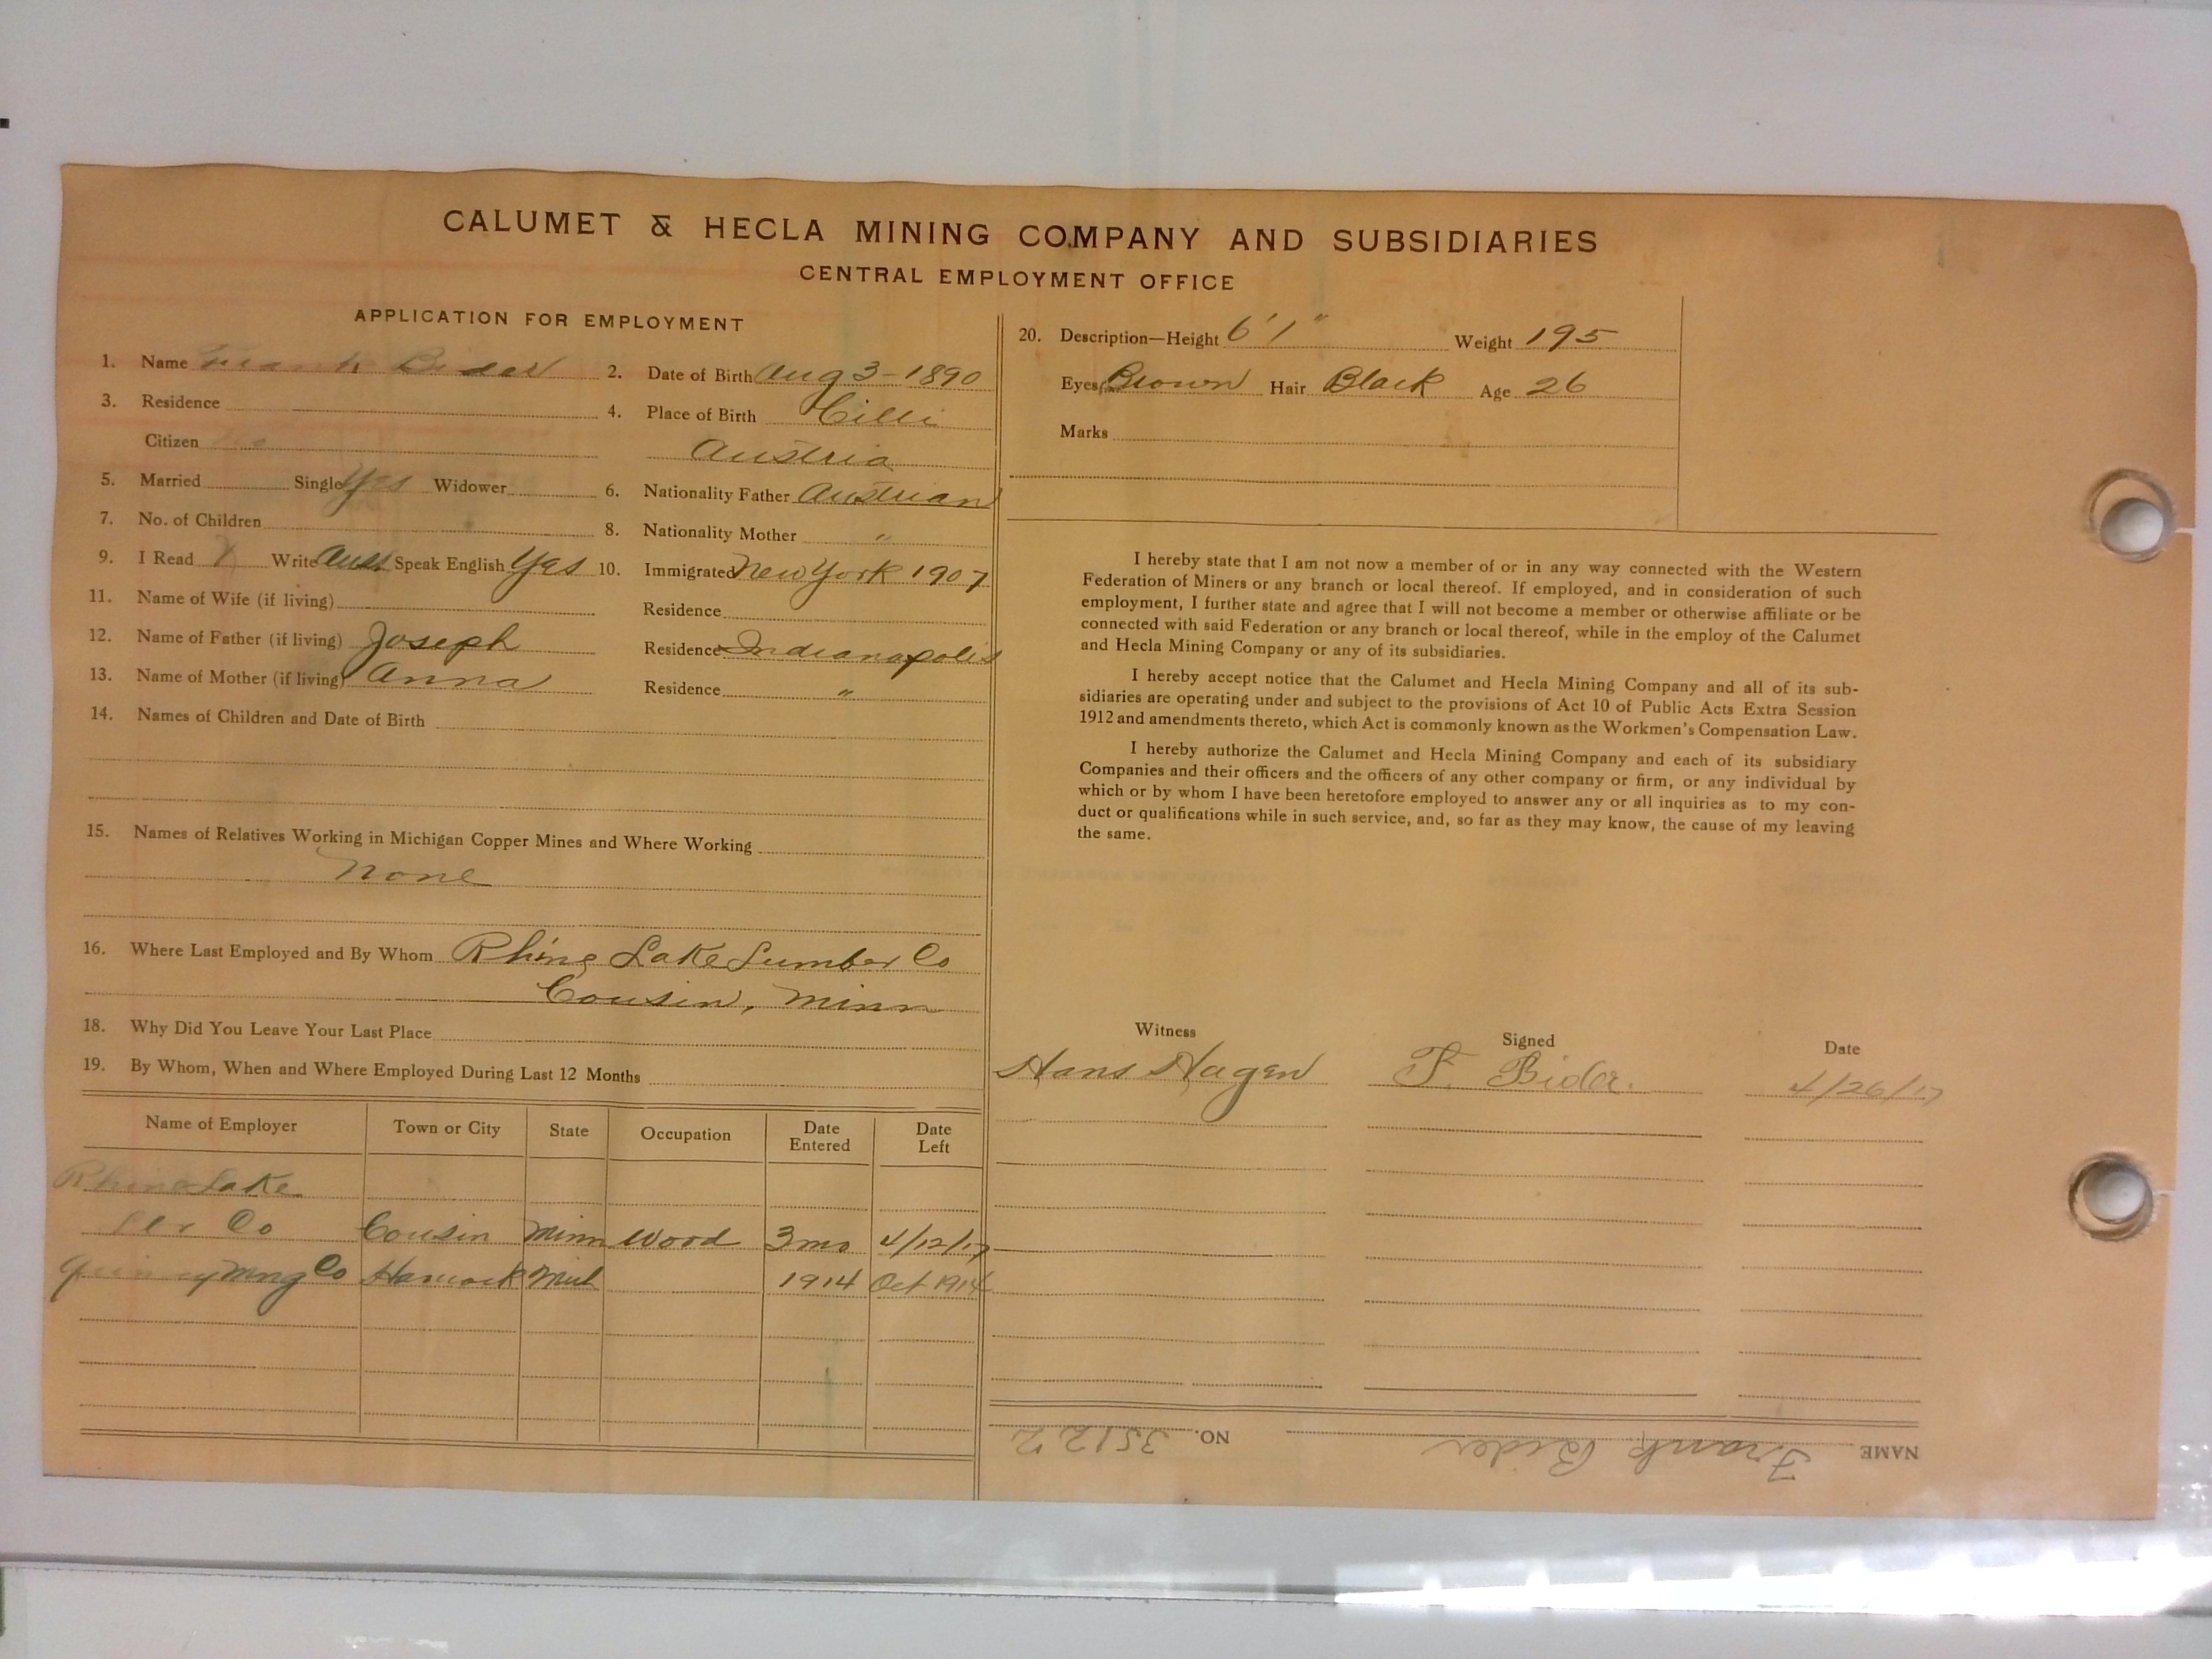 CALUMET & HECLA MINING COMPANY AND SUBSIDIARIES
CENTRAL EMPLOYMENT OFFICE
APPLICATION FOR EMPLOYMENT
1. Name Frank Bider 2. Date of Birth Aug 3-1890
3. Residence 4. Place of Birth Cilli
Citizen Austria
5. Married Single Yes Widower 6. Nationality Father Austrian
7. No. of Children 8. Nationality Mother "
9. I Read Write Aust Speak English Yes 10. Immigrated New York 1907
11. Name of Wife (if living) Residence
12. Name of Father (if living) Joseph Residence Indianapolis
13. Name of Mother (if living) Anna Residence "
14. Names of Children and Date of Birth
15. Names of Relatives Working in Michigan Copper Mines and Where Working
None
16. Where Last Employed and By Whom Rhine Lake Lumber Co
Cousin, Minn
18. Why Did You Leave Your Last Place
19. By Whom, When and Where Employed During Last 12 Months
Name of Employer Town or City State Occupation Date Entered Date Left
Rhine Lake
Lbr Co Cousin Minn Wood 3 mo 4/12/17
Quincy Mng Co Hancock Mich 1914 Oct 1914
20. Description—Height 6'1" Weight 195
Eyes Brown Hair Black Age 26
Marks
I hereby state that I am not now a member of or in any way connected with the Western
Federation of Miners or any branch or local thereof. If employed, and in consideration of such
employment, I further state and agree that I will not become a member or otherwise affiliate or be
connected with said Federation or any branch or local thereof, while in the employ of the Calumet
and Hecla Mining Company or any of its subsidiaries.
I hereby accept notice that the Calumet and Hecla Mining Company and all of its sub-
sidiaries are operating under and subject to the provisions of Act 10 of Public Acts Extra Session
1912 and amendments thereto, which Act is commonly known as the Workmen's Compensation Law.
I hereby authorize the Calumet and Hecla Mining Company and each of its subsidiary
Companies and their officers and the officers of any other company or firm, or any individual by
which or by whom I have been heretofore employed to answer any or all inquiries as to my con-
duct or qualifications while in such service, and, so far as they may know, the cause of my leaving
the same.
Witness Signed Date
Hans Hagen F. Bider. 4/26/17
NAME Frank Bider NO. 35122